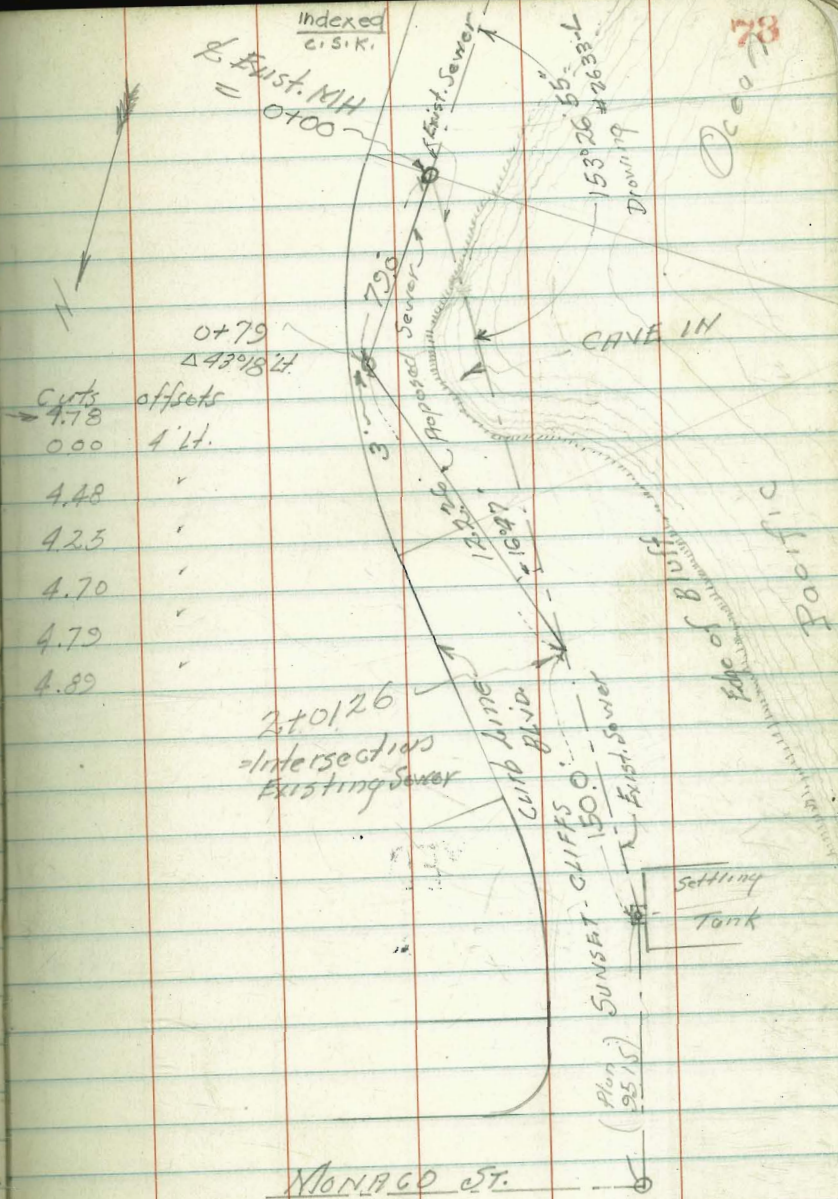 Indexed
C.S.K.
73
Exist. MH
= 0+00
Exist. Sewer
153°26'55"
Drawing #2633-L
Ocean
N
79.0'
Proposed Sewer
0+79
Δ 43°18' Lt.
CAVE IN
Cuts offsets
4.78
0.00 4' Lt.
4.48 "
4.25 "
4.70 "
4.79 "
4.89 "
3'
Edge of Bluff
Pacific
2+01.26
=Intersection
Existing Sewer
Curb Line
SUNSET-CLIFFS Blvd.
150.0'
Exist. Sewer
Settling
Tank
(Plan
9515)
MONACO ST.